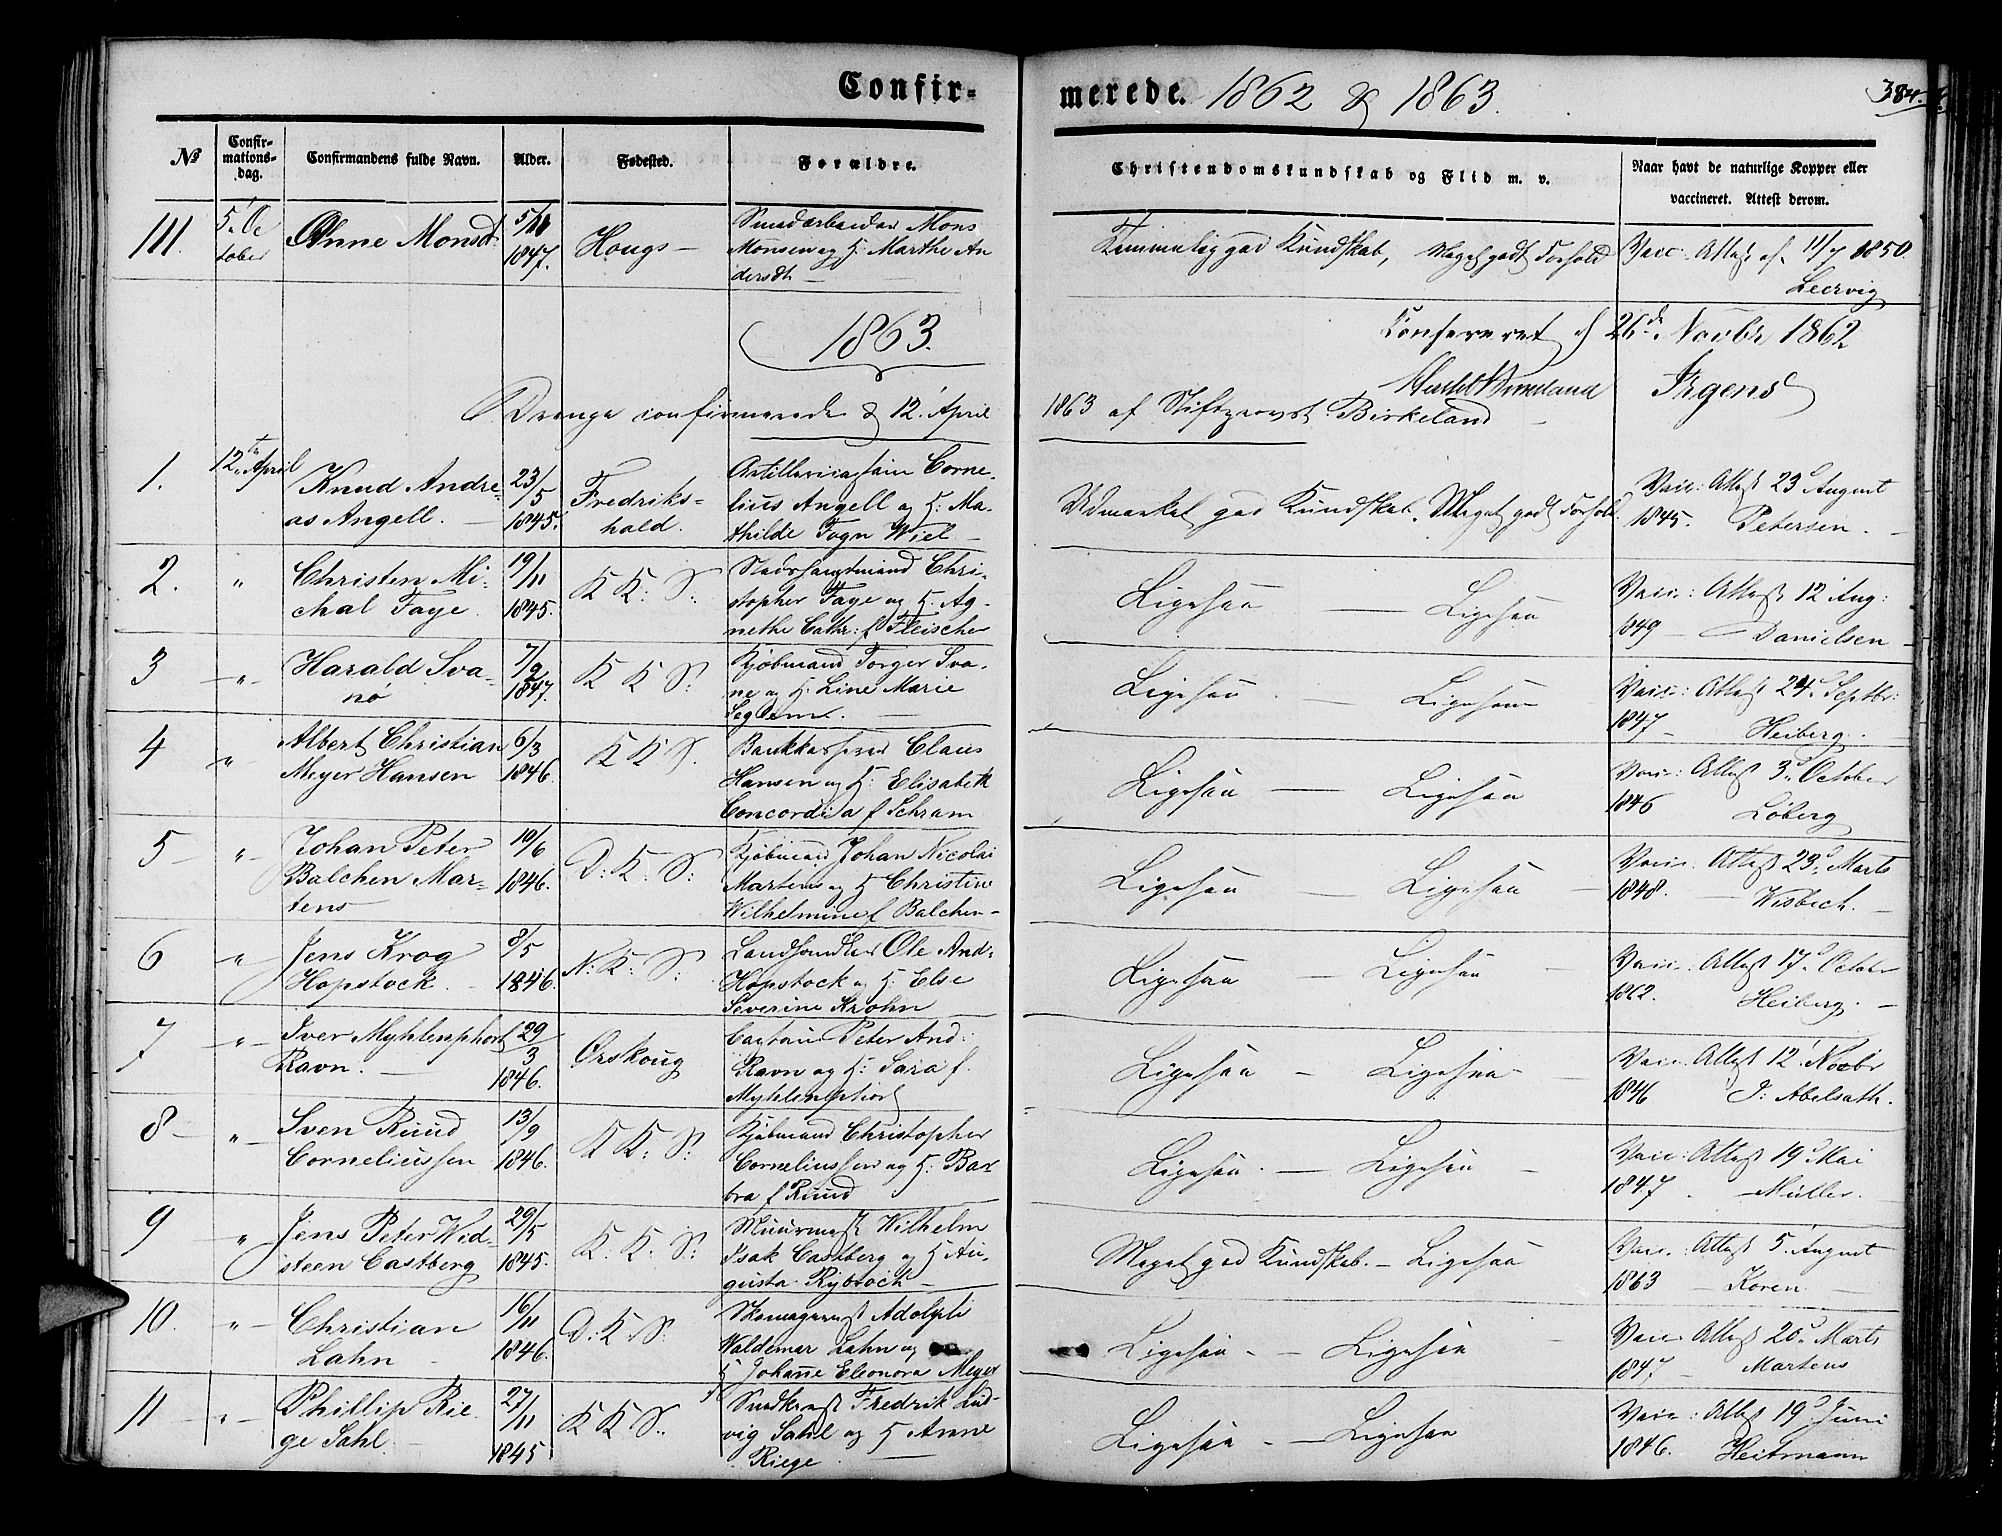 Confir- merede. 1862 & 1863.
384.
No Confir- mations- dag. Confirmandens fulde Navn. Alder. Fødested. Forældre. Christendomskundskab og Flid m. v. Naar havt de naturlige Kopper eller vaccineret. Attest derom.
111. 5. Oc Anne Monsd. 5/11 Hougs – Mons
tober 1847. Monsen og H: Marthe An Temmelig god Kundskab, Meget godt Forhold Vacc. Attest af 11/7 1850.
dersdt – Leervig
1863. Confereret d 26de Novbr 1862
Irgens
Drenge confirmerede d 12. April 1863 af Stiftsprovst Birkeland –
1. 12te April Knud Andre- 23/5 Fredriks- Corne-
as Angell. – 1845. hald. lius Angell og H: Ma- Udmærket god Kundskab. Meget godt Forhold. Vacc: Attest 23 August
thilde Fogn Wiel – 1845. Petersen –
2. " Christen Mi- 19/11 K K: S: Chri-
chal Faye. 1845. stopher Faye og H. Ag- Ligesaa – Ligesaa Vacc: Attest 12 Aug:
nethe Cathr: f Fleischer 1849 – Danielsen –
3 – " – Harald Sva- 7/2 K K S: Kjøbmand Torger Sva-
nø 1847. nøe og H: Line Marie Ligesaa – Ligesaa – Vacc: Attest 24. Septbr:
Seglem. – 1847 – Heiberg.
4 " Albert Christian 6/3 K K S. Bankkasserer Claus
Meyer Hansen 1846. Hansen og H: Elisabeth Ligesaa – Ligesaa Vacc: Attest 3. October
Concordia f Schram 1846 Løberg
5 – " – Johan Peter 10/6 D: K: S: Kjøbmand Johan Nicolai
Balchen Mar- 1846. Martens og H Christine Ligesaa Ligesaa – Vacc. Attest 23. Marts
tens Wilhelmine f Balchen – 1848. – Wisbech. –
6 – " – Jens Krog 8/5 N: K: S: Landhandler Ole And:
Hopstock. – 1846. Hopstock og H: Else Ligesaa – Ligesaa – Vacc: Attest 17. October
Severine Krohn 1862. Heiberg. –
7 – " – Iver Myhlenphort 29/3 Ørskoug Captain Peter And:
Ravn. – 1846. Ravn og H: Sara f. Ligesaa – Ligesaa – Vacc. Attest 12 Novbr
Myhlenphort 1846 J: Abelsæth.
8 – " – Sven Ruud 13/9 K K: S: Kjøbmand Christopher
Corneliussen 1846. Corneliussen og H: Bar Ligesaa. – Ligesaa – Vacc: Attest 19 Mai
bra f Ruud 1847. – Müller.
9 – " Jens Peter Wid- 29/5 K. K. S: Muurmest Wilhelm
steen Castberg 1845. Isak Castberg og H Au- Meget god Kundskab. – Ligesaa Vacc: Attest 5. August
gusta – 1863 – Koren –
10. – " – Christian 16/11 D: K. S: Skomagermest Adolph
Lahn – 1846. Waldemar Lahn og Ligesaa – – Ligesaa – Vacc Attest 20 Marts
H Johanne Eleonora Meyer 1847 – Martens
11 – – " – Phillip Rie- 27/11 K K S: Fredrik Lud-
ge Sahl – 1845 vig Sahl og H Anne Ligesaa – – Ligesaa Vacc: Attest 19 Juni
Riege. – 1846. – Heitmann